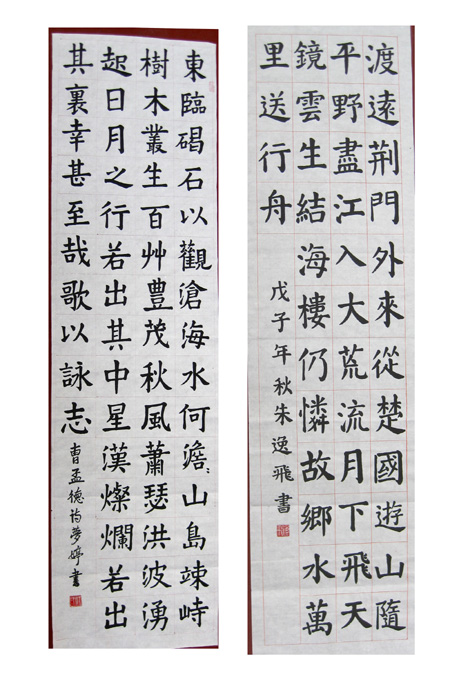 渡遠荆門外來從楚國遊山隨
平野盡江入大荒流月下飛天
鏡雲生結海樓仍憐故鄉水萬
里送行舟
戊子年秋朱逸飛書
東臨碣石以觀滄海水何澹〻山島竦峙
樹木叢生百艸豐茂秋風蕭瑟洪波湧
起日月之行若出其中星漢燦爛若出
其裏幸甚至哉歌以詠志
曹孟德詩夢婷書